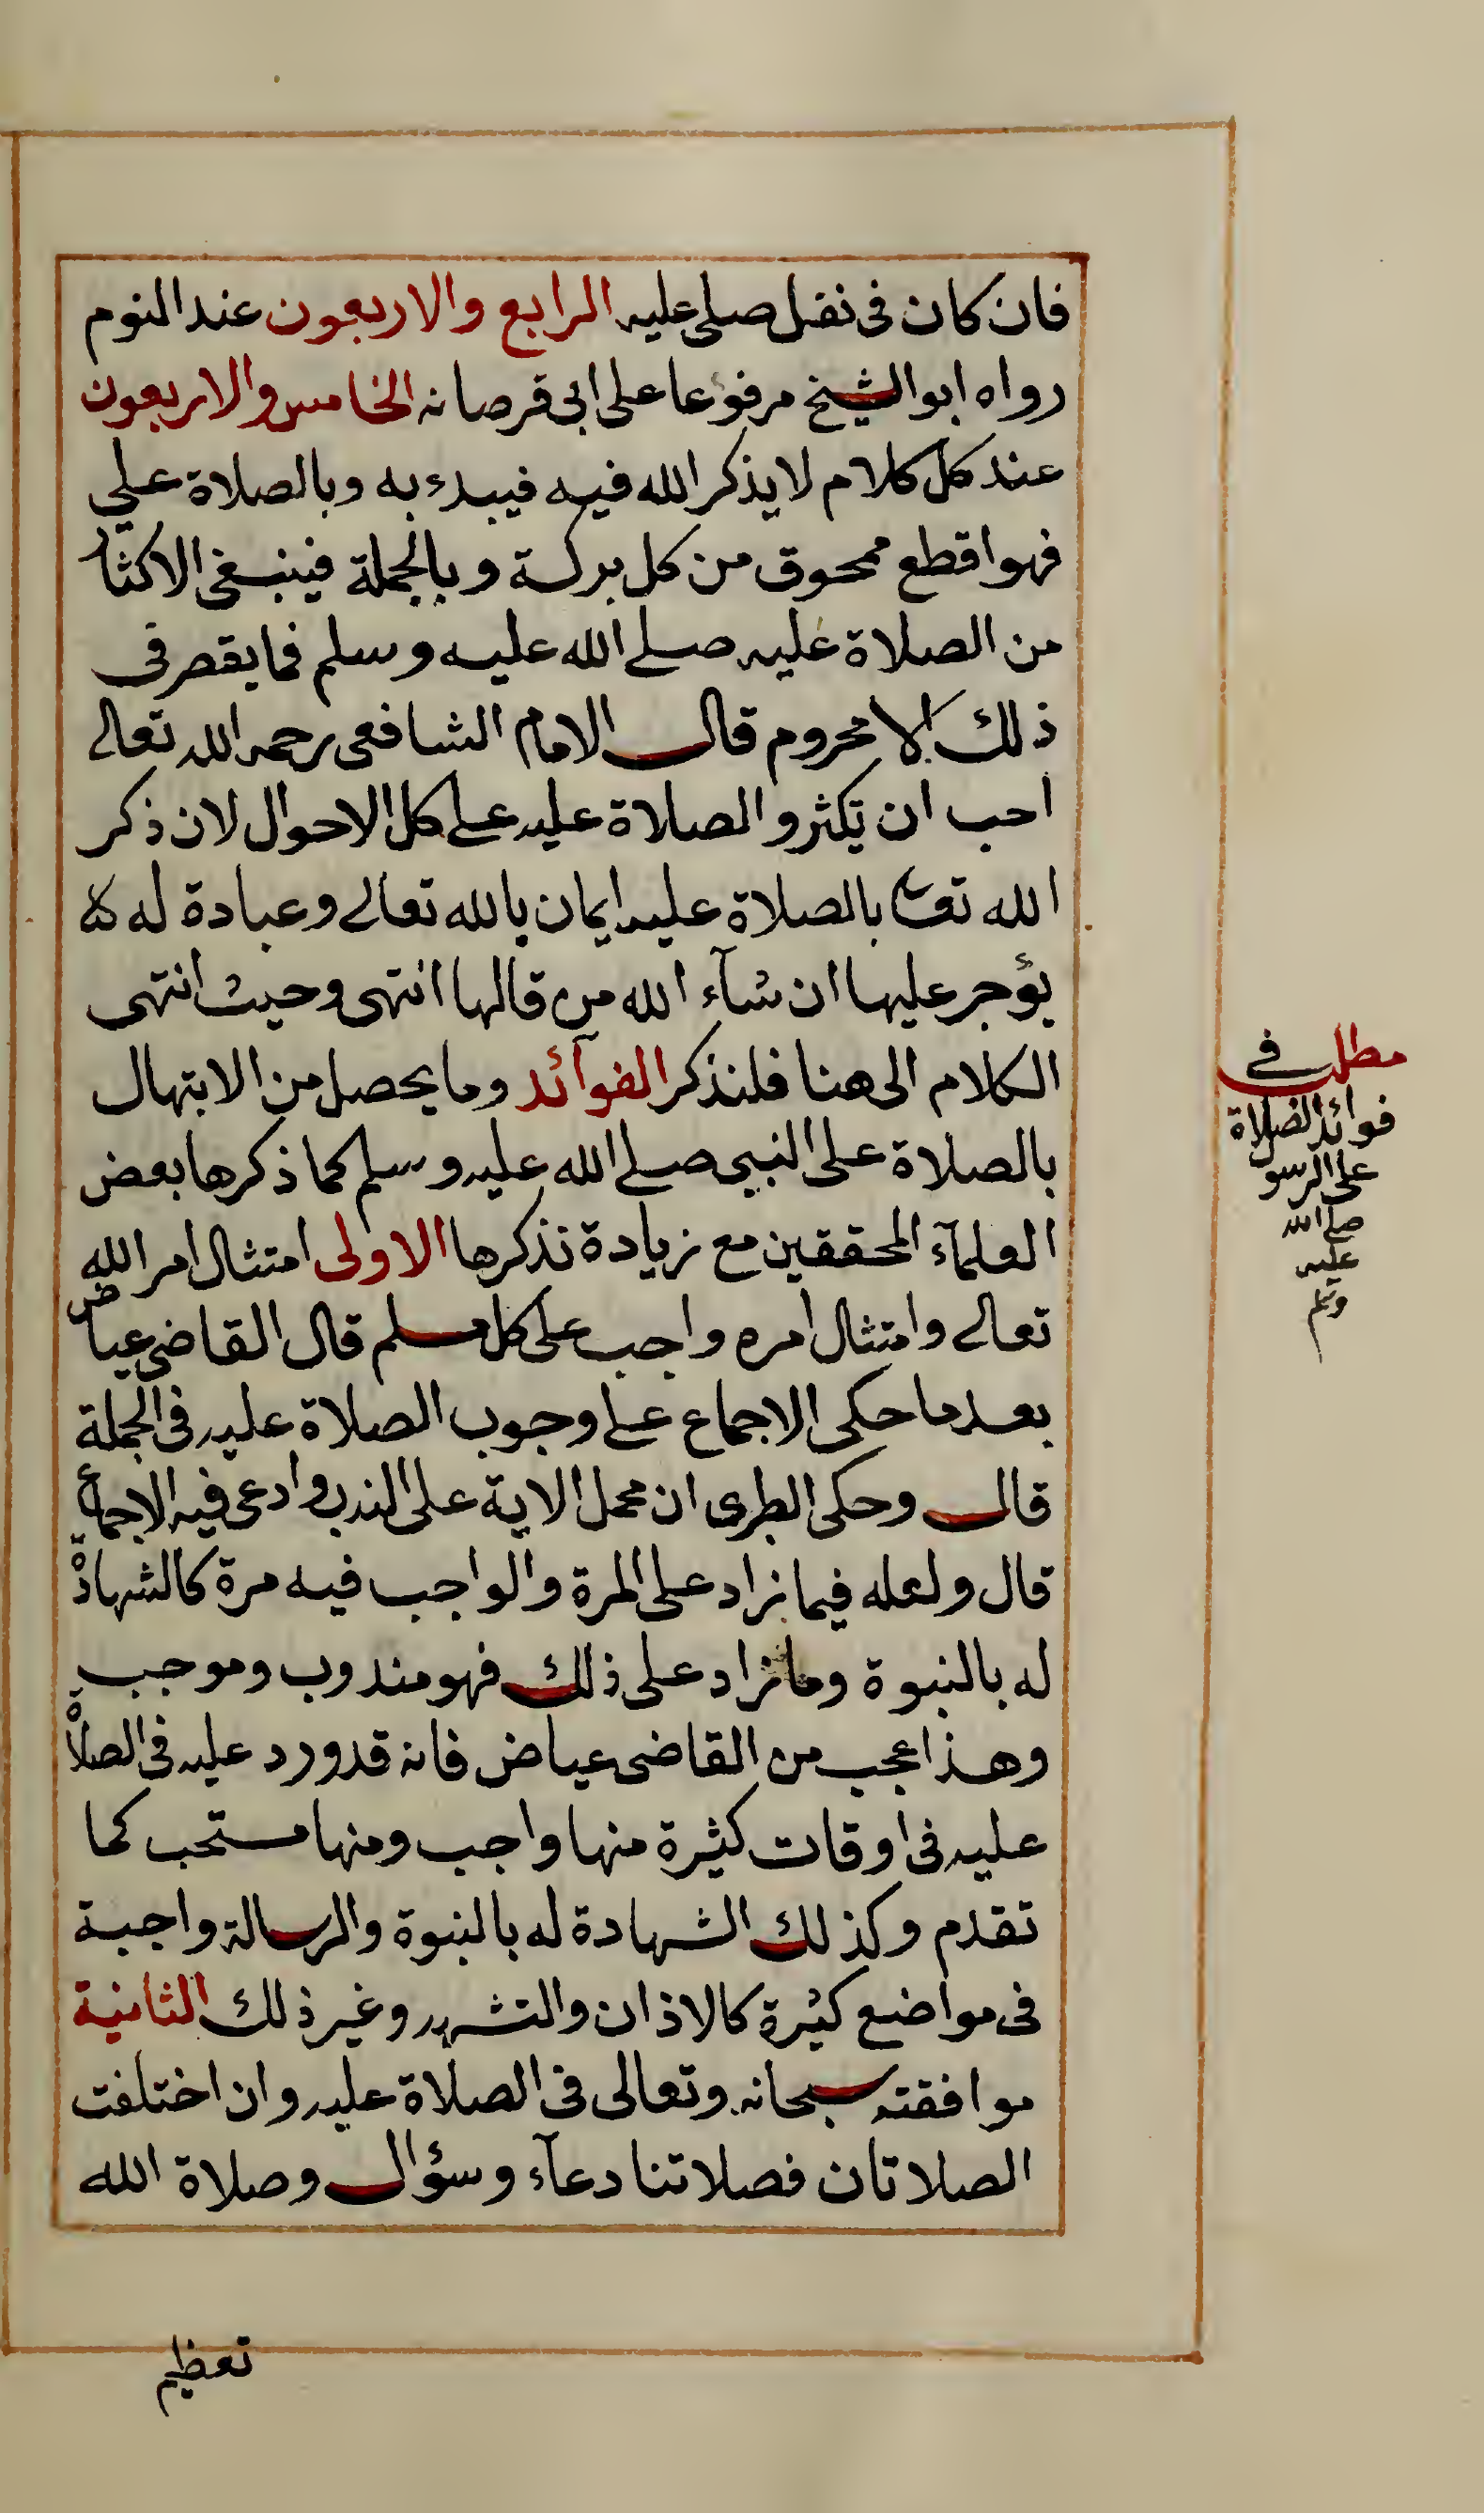 فان كان فى نفل صلى عليه الرابع والاربعون عند النوم
رواه ابو الشيخ مرفوعا على ابى قرصانه الخامس والاربعون
عند كل كلام لا يذكر الله فيه فيبدء به وبالصلاة علي
فهو اقطع ممحوق من كل بركة وبالجملة فينبغى الاكثار
من الصلاة عليه صلى الله عليه وسلم فما يقصر فى
ذلك الا محروم قال الامام الشافعى رحمه الله تعالى
احب ان تكثروا الصلاة عليه على كل الاحوال لان ذكر
الله تعا بالصلاة عليه ايمان بالله تعالى وعبادة له
يؤجر عليها ان شآء الله من قالها انتهى وحيث انتهى
الكلام الى هنا فلنذكر الفوآئد وما يحصل من الابتهال
بالصلاة على النبى صلى الله عليه وسلم كما ذكرها بعض
العلمآء المحققين مع زيادة نذكرها الاولى امتثال امر الله
تعالى وامتثال امره واجب على كل مسلم قال القاضى عياض
بعد ما حكى الاجماع على وجوب الصلاة عليه فى الجملة
قال وحكى الطبرى ان محمل الاية على الندب وادعى فيه الاجماع
قال ولعله فيما زاد على المرة والواجب فيه مرة كالشهادة
له بالنبوة وما زاد على ذلك فهو مندوب وموجب
وهذا عجب من القاضى عياض فانه قد ورد عليه فى الصلاة
عليه فى اوقات كثيرة منها واجب ومنها مستحب كما
تقدم وكذلك الشهادة له بالنبوة والرسالة واجبة
فى مواضع كثيرة كالاذان والتشهد وغير ذلك الثانية
موافقته سبحانه وتعالى فى الصلاة عليه وان اختلفت
الصلاتان فصلاتنا دعآء وسؤال وصلاة الله
تعظيم
مطلب فى
فوائد الصلاة
على الرسو
صلى الله
عليه
وسلم